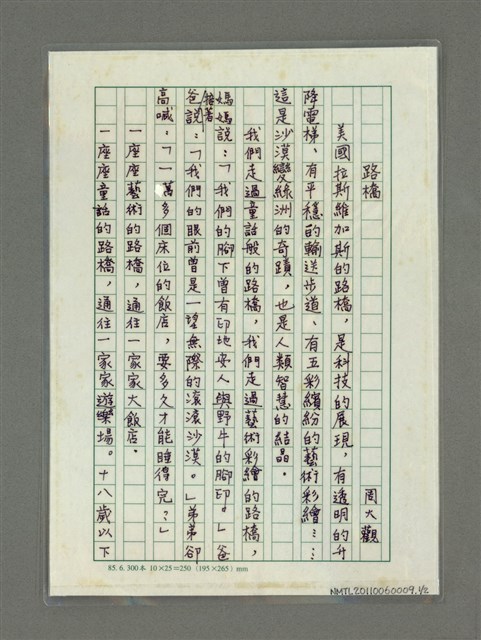 路橋　周大觀
美國拉斯維加斯的路橋，是科技的展現，有透明的升
降電梯、有平穩的輸送步道、有五彩繽紛的藝術彩繪……
這是沙漠變綠洲的奇蹟，也是人類智慧的結晶。
我們走過童話般的路橋，我們走過藝術彩繪的路橋，
媽媽說：「我們的腳下曾有印地安人與野牛的腳印。」爸
爸接著說：「我們的眼前曾是一望無際的滾滾沙漠。」弟弟卻
高喊：「一萬多個床位的飯店，要多久才能睡得完？」
一座座藝術的路橋，通往一家家大飯店。
一座座童話的路橋，通往一家家遊樂場。十八歲以下
85. 6. 300本 10×25＝250 (195×265) mm
NMTL20110060009.1/2